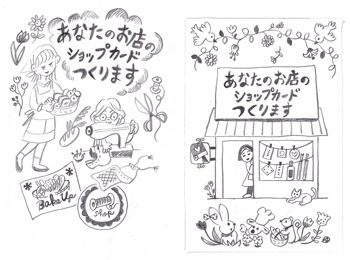 あなたのお店の
ショップカード
つくります
Bake Up
shop
あなたのお店の
ショップカード
つくります